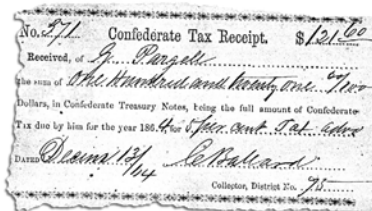 No. 971 Confederate Tax Receipt. $121 60
Received, of G. Pargell
the sum of One Hundred and Twenty One 60/100
Dollars, in Confederate Treasury Notes, being the full amount of Confederate
Tax due by him for the year 1864 for 5 per cent Tax
Dated 13/64
Collector, District No.